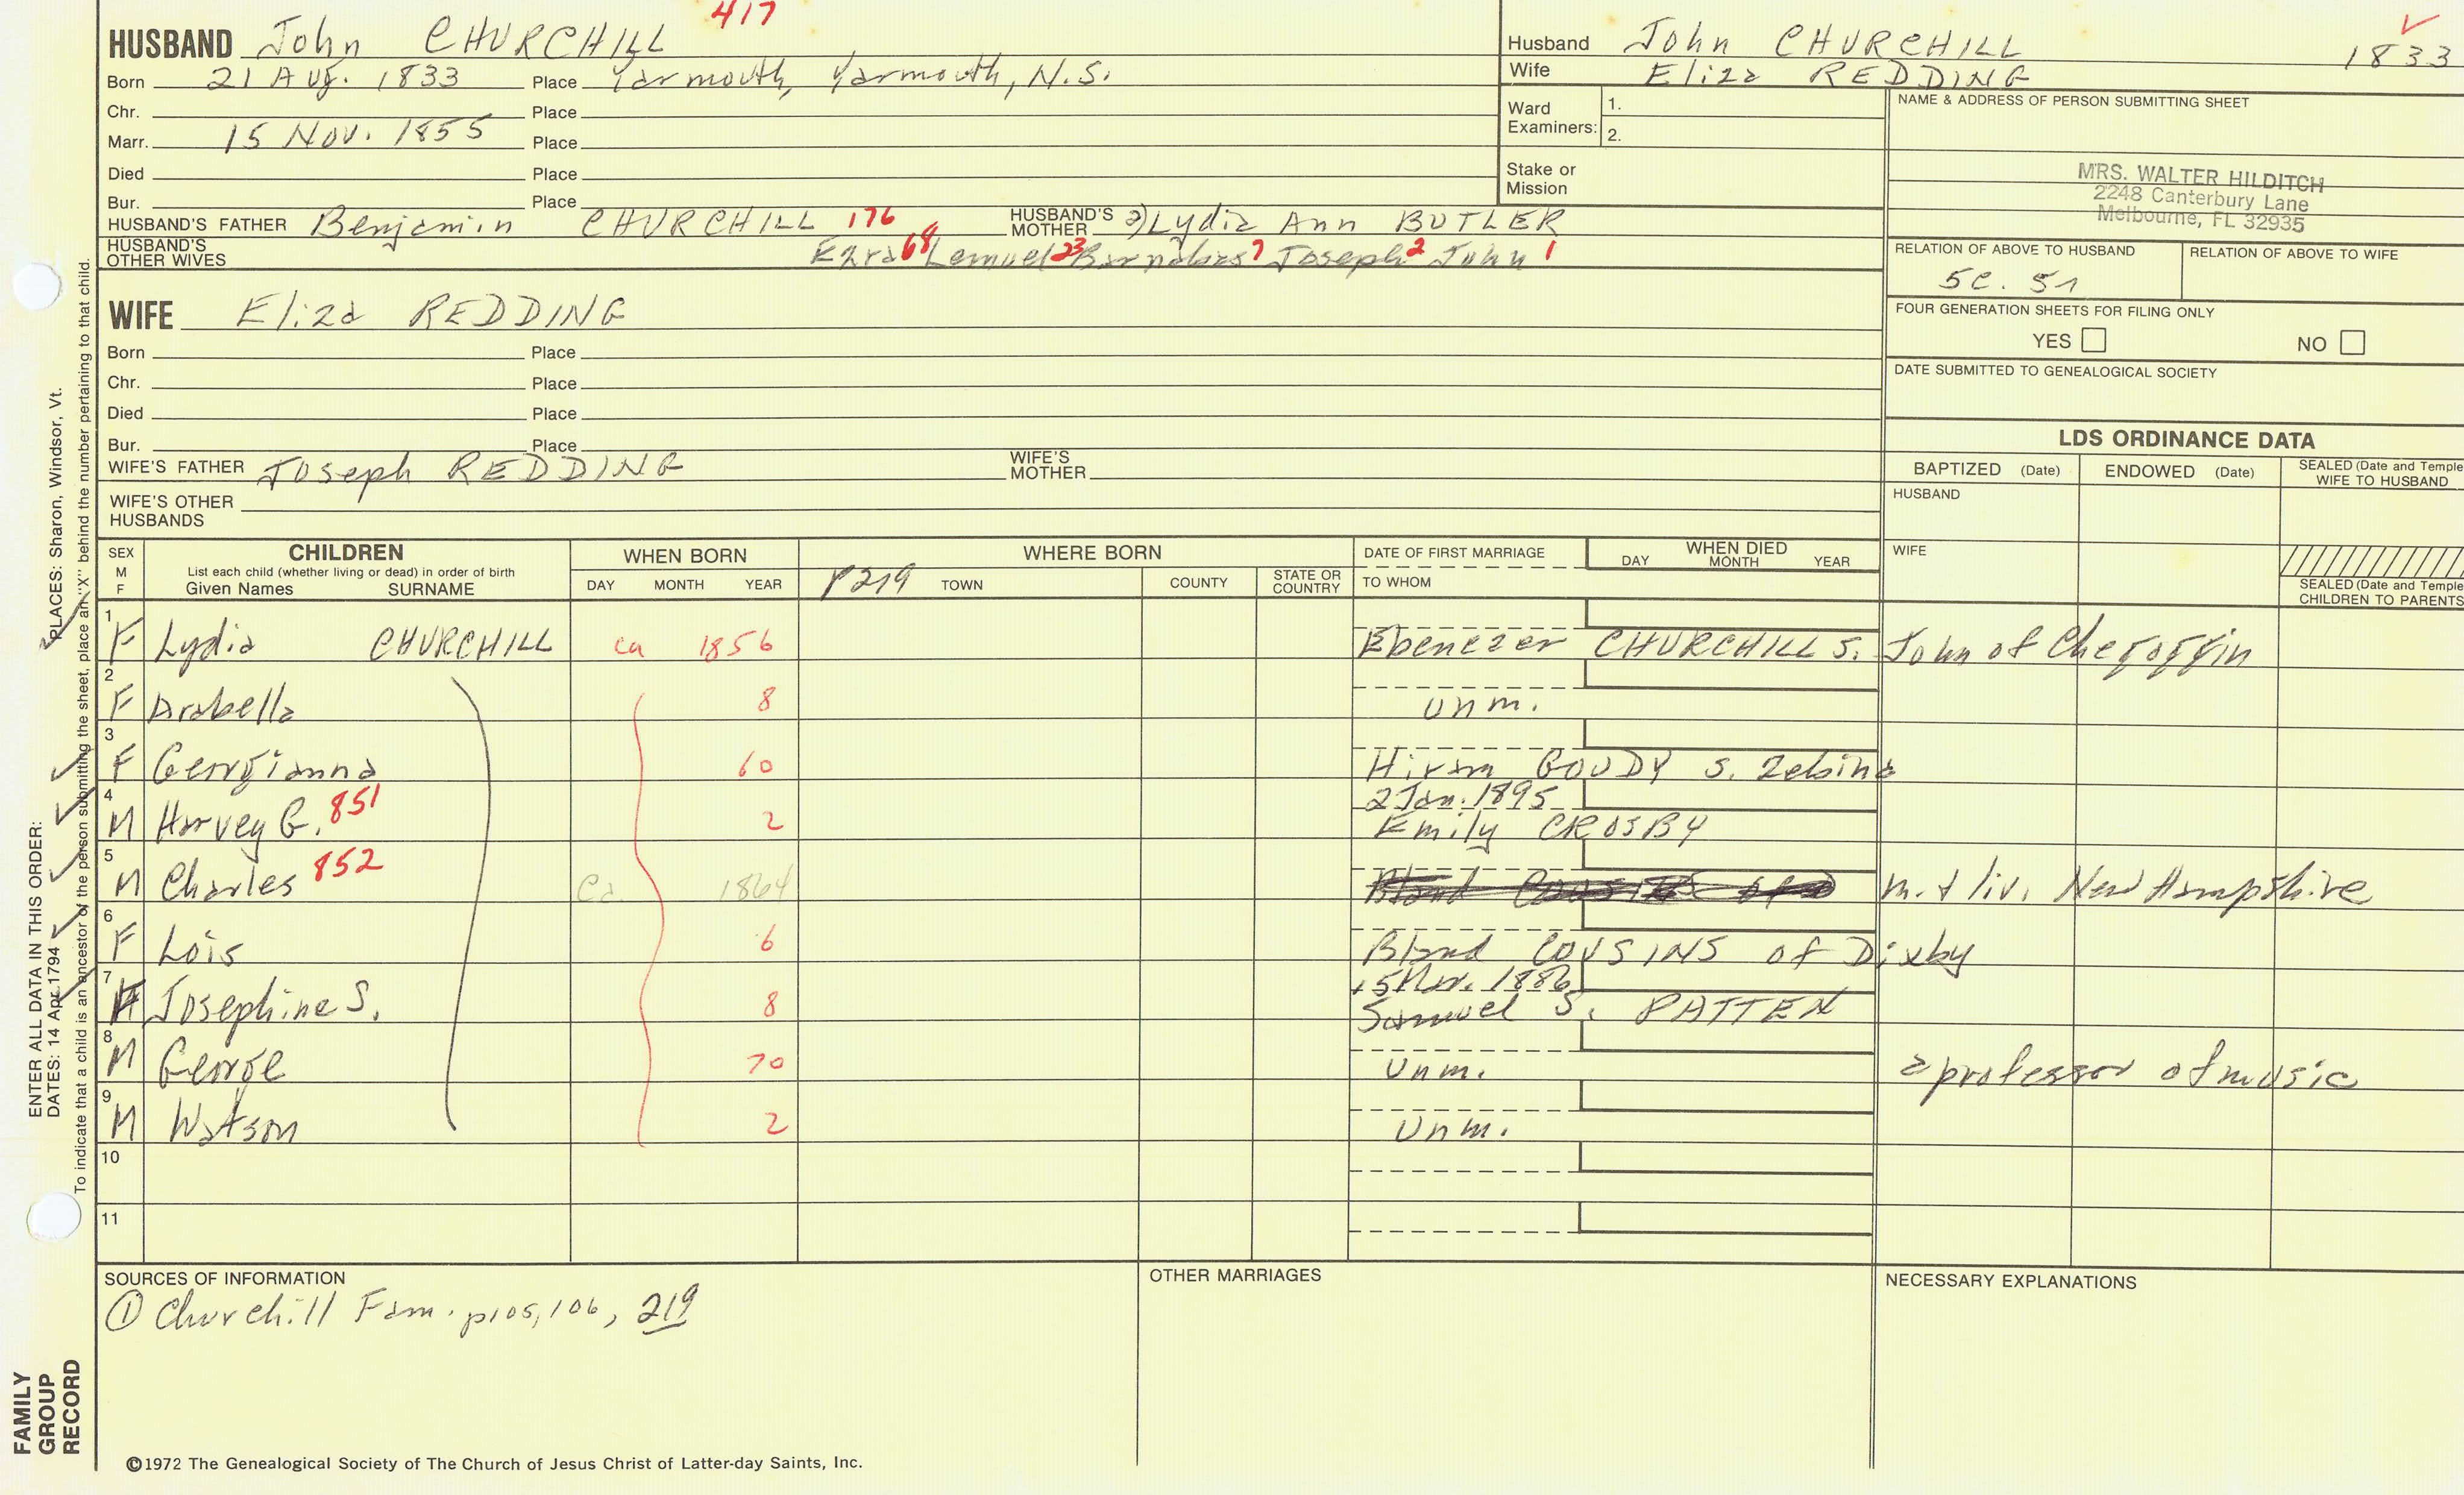 417
HUSBAND John CHURCHILL
Born 21 Aug. 1833 Place Yarmouth, Yarmouth, N.S.
Chr. Place
Marr. 15 Nov. 1855 Place
Died Place
Bur. Place
HUSBAND'S FATHER Benjamin CHURCHILL 176 HUSBAND'S MOTHER 2) Lydia Ann BUTLER
HUSBAND'S OTHER WIVES Ezra 68 Lemuel 23 Barnabas 7 Joseph 2 John 1
Husband John CHURCHILL 1833
Wife Eliza REDDING
Ward Examiners: 1.
2.
Stake or Mission
NAME & ADDRESS OF PERSON SUBMITTING SHEET
MRS. WALTER HILDITCH
2248 Canterbury Lane
Melbourne, FL 32935
RELATION OF ABOVE TO HUSBAND RELATION OF ABOVE TO WIFE
5c. 5r
FOUR GENERATION SHEETS FOR FILING ONLY
YES NO
DATE SUBMITTED TO GENEALOGICAL SOCIETY
WIFE Eliza REDDING
Born Place
Chr. Place
Died Place
Bur. Place
WIFE'S FATHER Joseph REDDING WIFE'S MOTHER
WIFE'S OTHER HUSBANDS
LDS ORDINANCE DATA
BAPTIZED (Date) ENDOWED (Date) SEALED (Date and Temple
WIFE TO HUSBAND
HUSBAND
WIFE
SEALED (Date and Temple
CHILDREN TO PARENTS
SEX M F CHILDREN
List each child (whether living or dead) in order of birth
Given Names SURNAME
WHEN BORN
DAY MONTH YEAR
WHERE BORN
p219 TOWN COUNTY STATE OR COUNTRY
DATE OF FIRST MARRIAGE
TO WHOM
WHEN DIED
DAY MONTH YEAR
1 F Lydia CHURCHILL ca 1856 Ebenezer CHURCHILL s. John of Chegoggin
2 F Arabella 8 unm.
3 F Georgianna 60 Hiram GOUDY s. Zebina
4 M Harvey G. 851 2 2 Jan. 1895
Emily CROSBY
5 M Charles 852 Ca 1864 m. & liv. New Hampshire
6 F Lois 6 Bland COUSINS of Dixby
7 F Josephine S. 8 15 Nov. 1886
Samuel S. PATTEN
8 M George 70 Unm. a professor of music
9 M Watson 2 Unm.
10
11
SOURCES OF INFORMATION
① Churchill Fam. p105, 106, 219
OTHER MARRIAGES
NECESSARY EXPLANATIONS
©1972 The Genealogical Society of The Church of Jesus Christ of Latter-day Saints, Inc.
FAMILY
GROUP
RECORD
ENTER ALL DATA IN THIS ORDER:
DATES: 14 Apr 1794 PLACES: Sharon, Windsor, Vt.
To indicate that a child is an ancestor of the person submitting the sheet, place an "X" behind the number pertaining to that child.